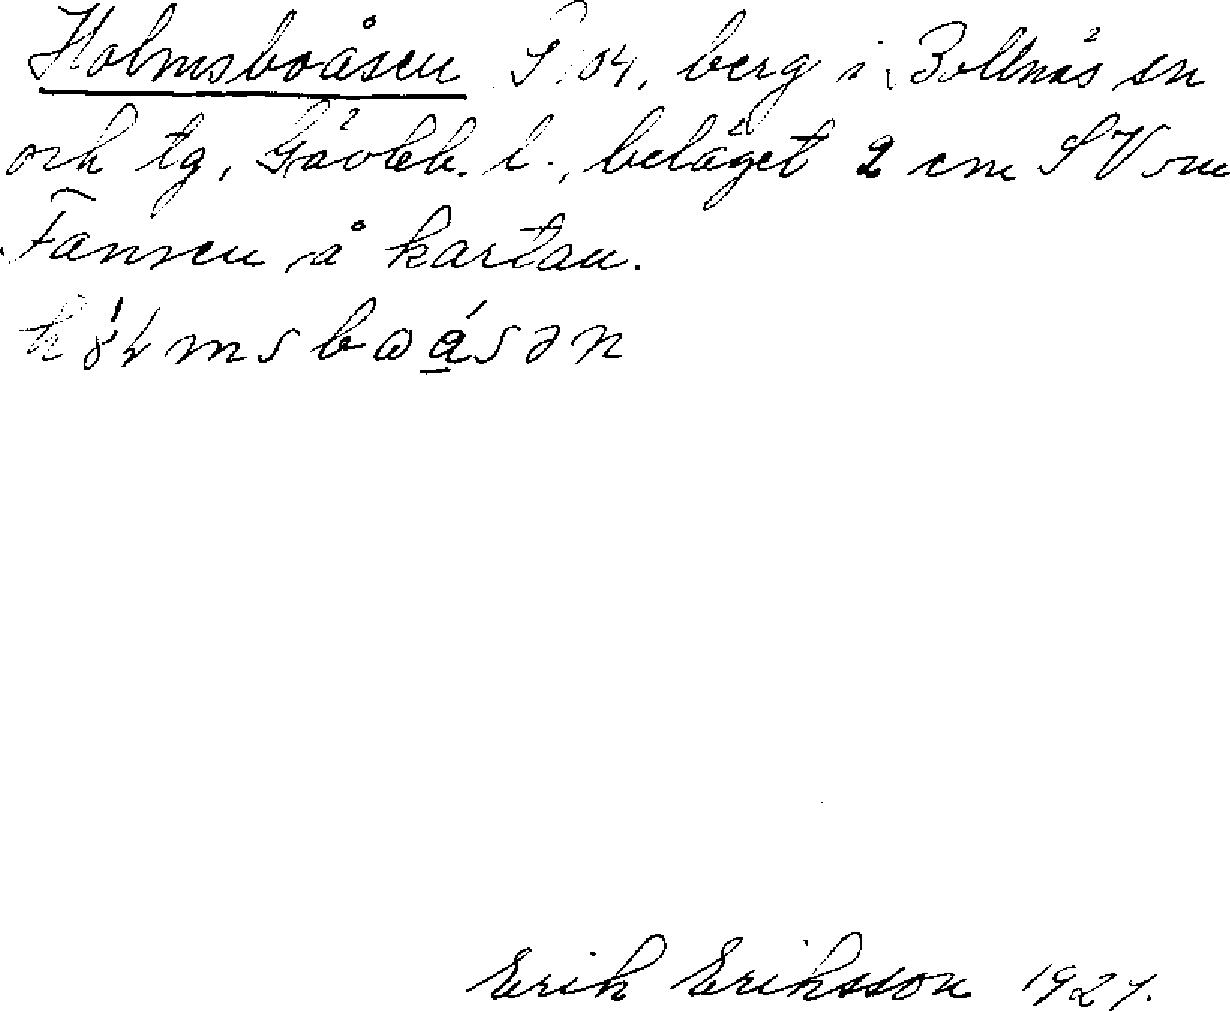 Holmsboåsen S 104, berg i Bollnäs sn
och tg, Gävleb. l., beläget 2 cm SV om
Fansen å kartan.
Erik Eriksson 1927.